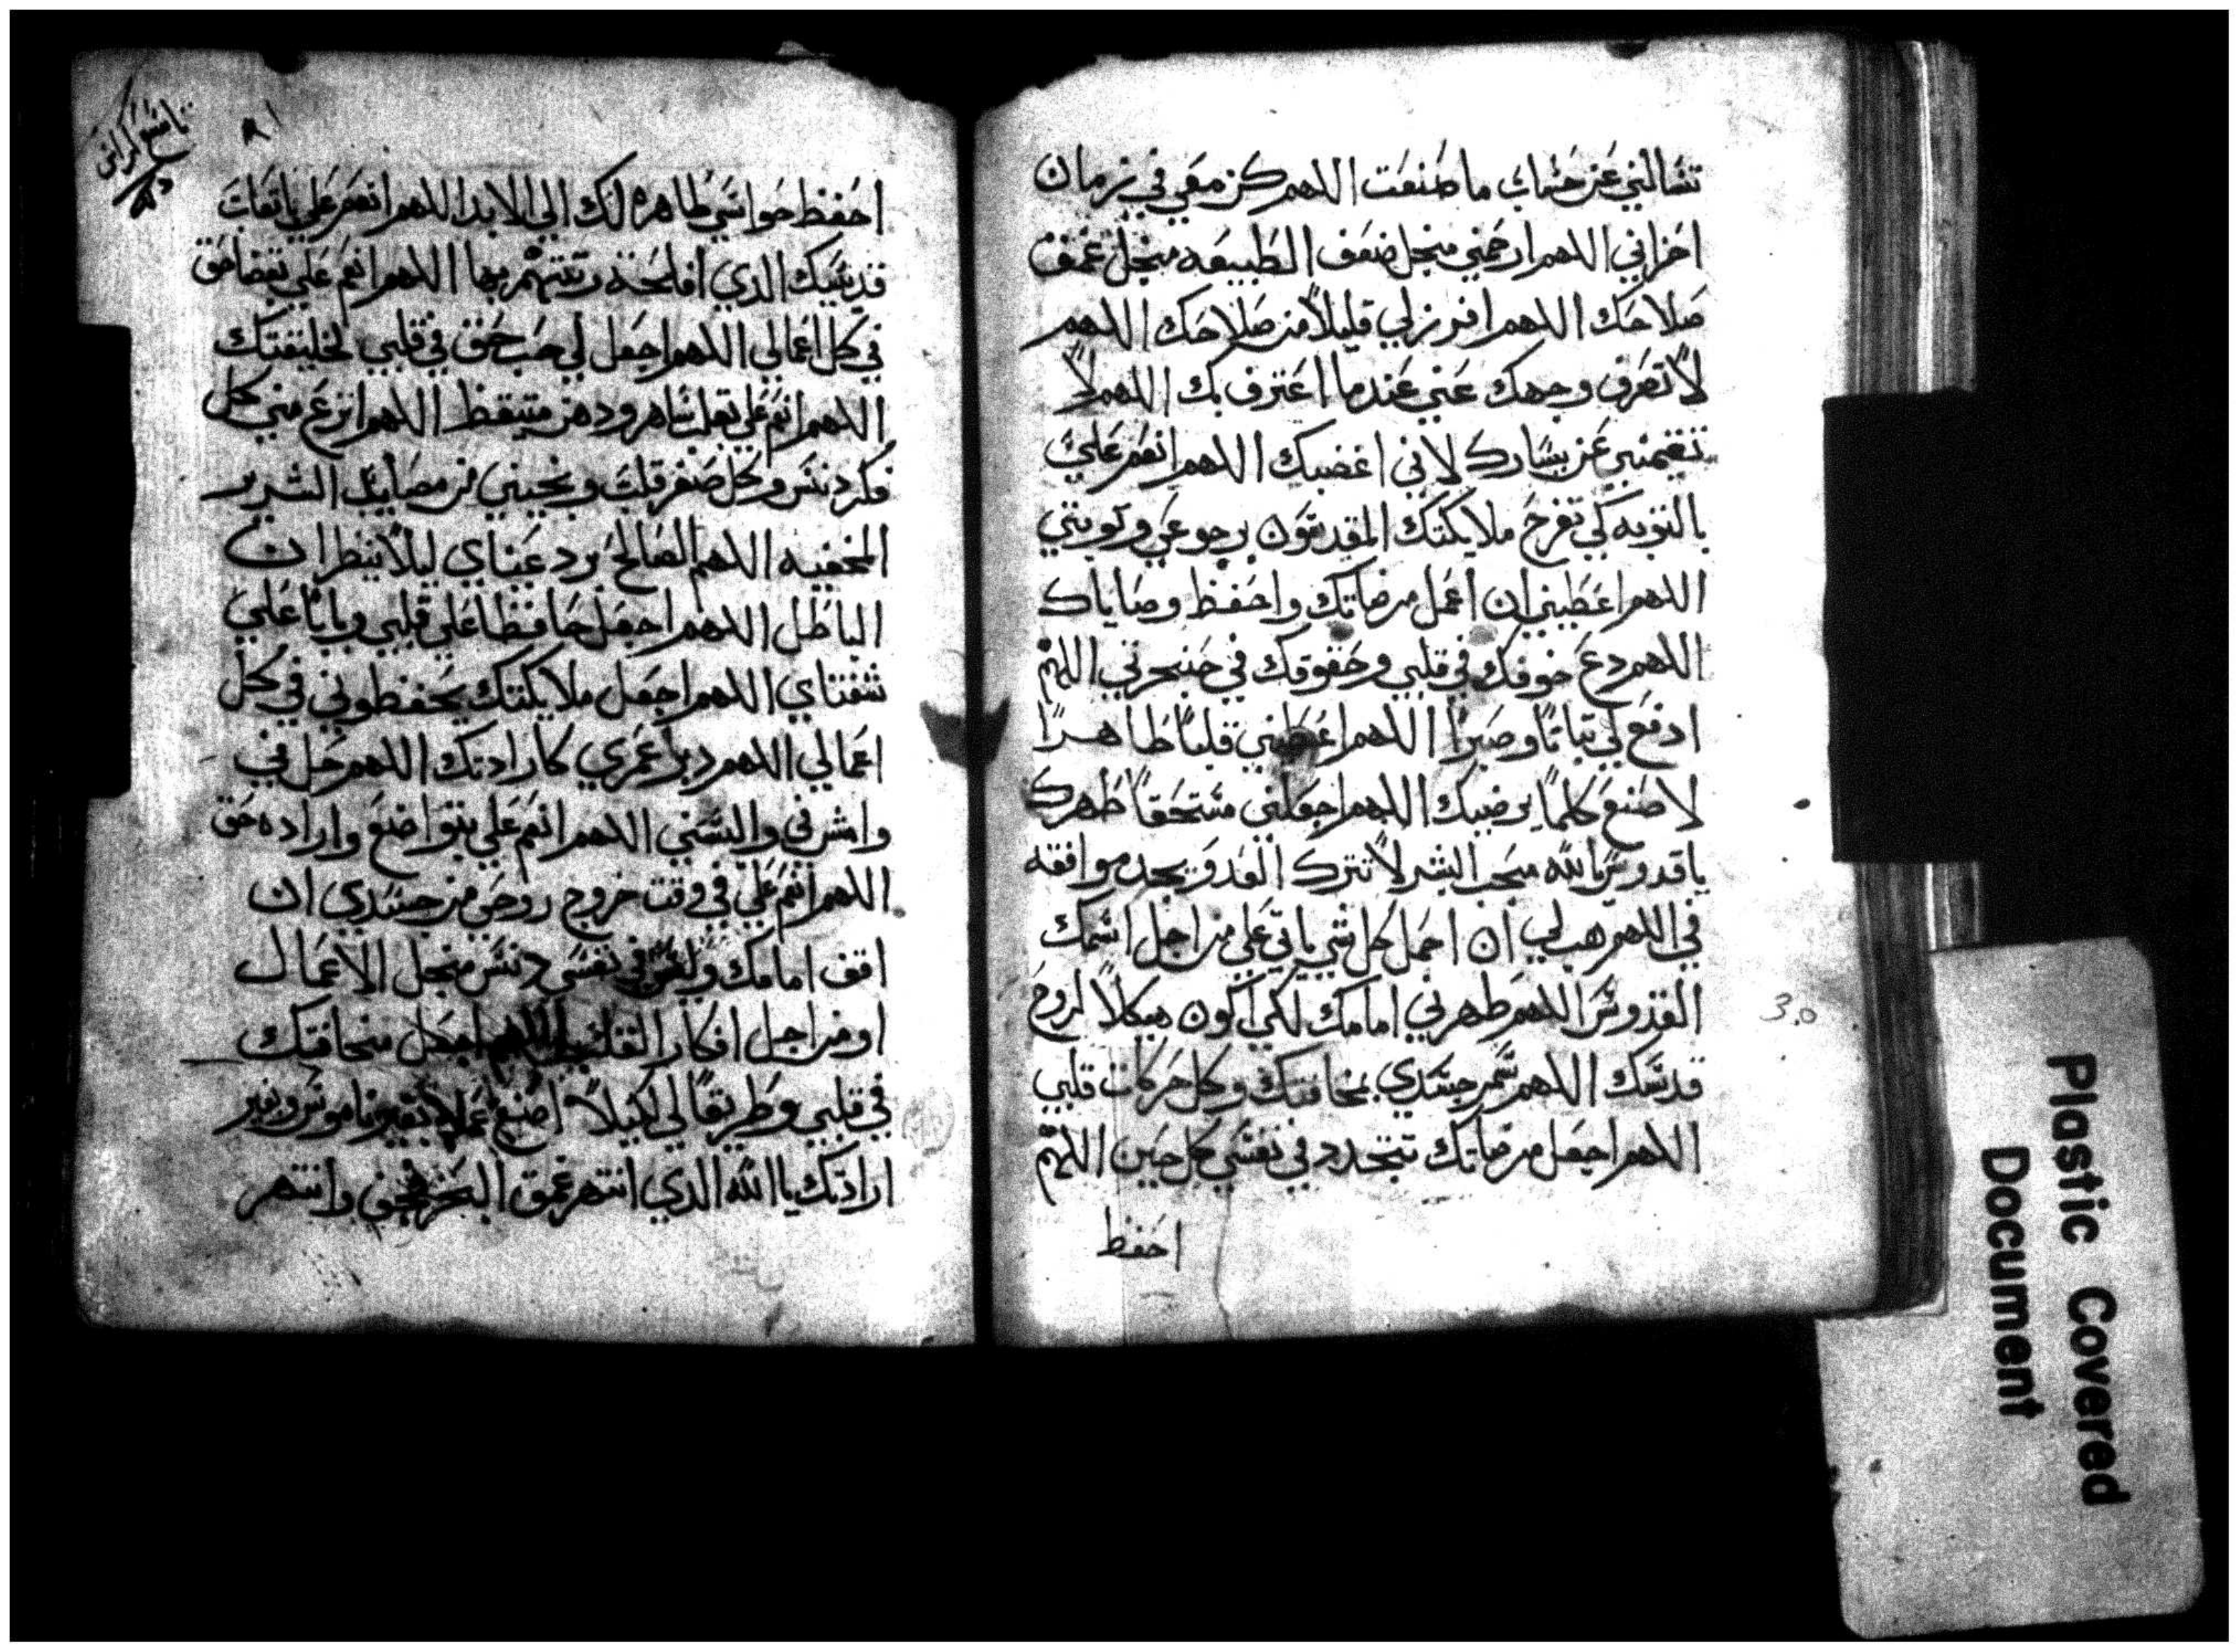 تسالني عن حساب ما صنعت اللهم كن معي في زمان
احزاني اللهم ارحمني منجل ضعف الطبيعه منجل عمق
صلاحك اللهم افرز لي قليلاً من صلاحك اللهم
لا تصرف وجهك عني عندما اعترف بك اللهم لا
تقيمني عن يسارك لاني اغضبك اللهم انعم علي
بالتوبه كي تفرح ملايكتك المقدسون برجوعي وتوبتي
اللهم اعطيني ان اعمل مرضاتك واحفظ وصاياك
اللهم دع خوفك في قلبي وحقوقك في حنجرتي اللهم
ادفع لي تباتاً وصبراً اللهم اعطيني قلباً طاهراً
لاصنع كلما يرضيك اللهم اجعلني مستحقاً طهرك
ياقدوس يالله محب البشر لا تترك العدو يجد موافقه
في اللهم هب لي ان احمل كل شي ياتي علي من اجل اسمك
القدوس اللهم طهرني امامك لكي اكون هيكلاً لروح
قدسك اللهم سمر جسدي بمخافتك وكل حركات قلبي
اللهم اجعل مرضاتك تتجدد في نفسي كل حين اللهم
احفظ
احفظ حواسي طاهره لك الي الابد اللهم انعم علي باتعاب
قديسيك الذي افلحه بها اللهم انعم علي
في كل اعمالي اللهم اجعل لي حب حق في قلبي لخليقتك
اللهم انعم علي بقلب ساهر ودهن متيقظ اللهم انزع مني كل
فكر دنس وكل صغر قلب ونجيني من مصايد الشرير
المخفيه اللهم الصالح رد عيناي ليلا ينظران
الباطل اللهم اجعل حافظا علي قلبي وبابا علي
شفتاي اللهم اجعل ملايكتك يحفظوني في كل
اعمالي اللهم دبر عمري كارادتك اللهم حل في
وامش في والبسني اللهم انعم علي بتواضع واراده حق
اللهم انعم علي في وقت خروج روحي من جسدي ان
اقف امامك وليس في نفسي دنس منجل الاعمال
او من اجل افكار القلب اللهم اجعل مخافتك
في قلبي وطريقاً لي لكيلا اصنع عملا بغير ناموس وبغير
ارادتك يا الله الذي انتهر عمق البحر فجف وانتهر
30
Plastic Covered
Document